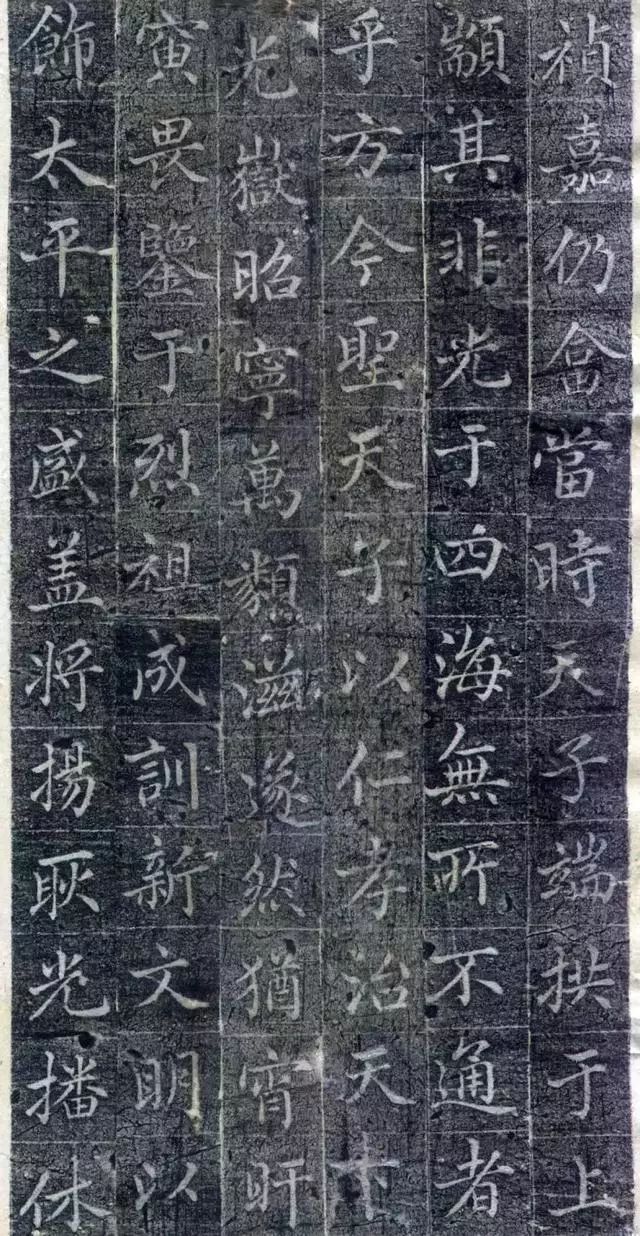 禎嘉仍畣當時天子端拱于上
顓其非光于四海無所不通者
乎方今聖天子以仁孝治天下
光嶽昭寧萬類滋遂然猶宵旰
寅畏鑒于烈祖成訓新文明以
飾太平之盛盖將揚耿光播休